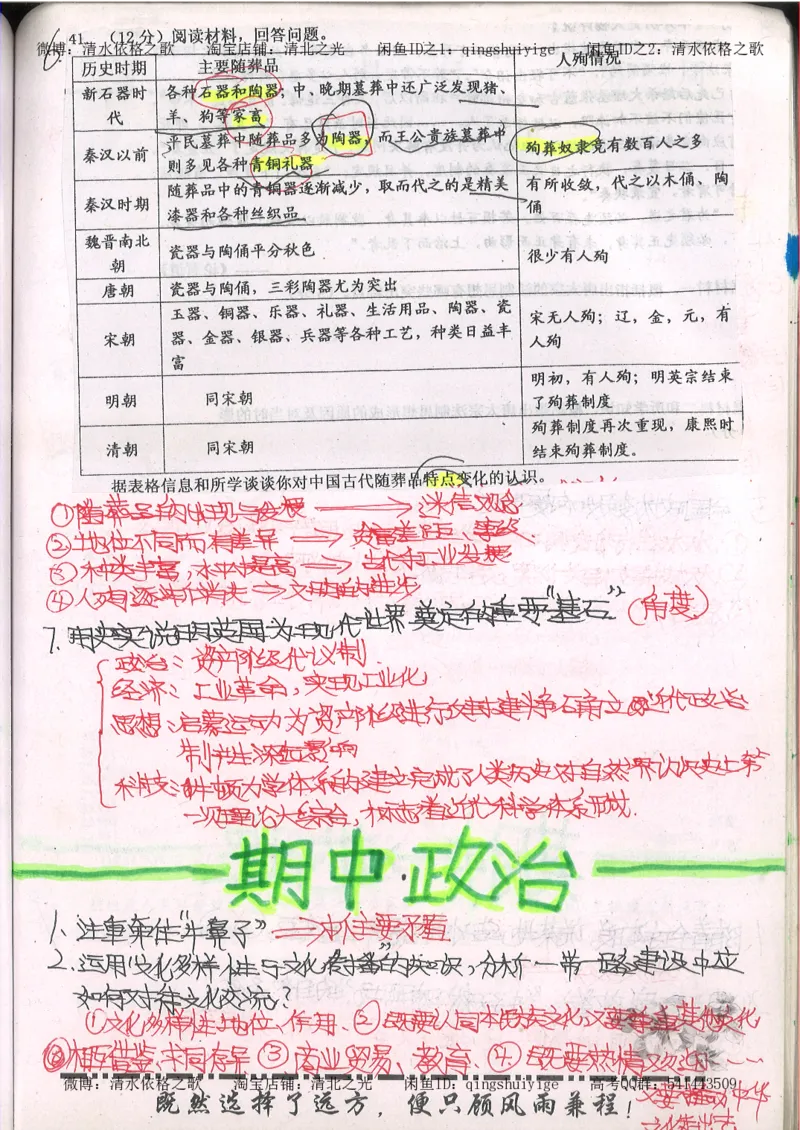 41. （12分）阅读材料，回答问题。
微博：清水依格之歌 淘宝店铺：清北之光 闲鱼ID之1：qingshuiyige 闲鱼ID之2：清水依格之歌
历史时期 主要随葬品 人殉情况
新石器时代 各种石器和陶器；中、晚期墓葬中还广泛发现猪、
羊、狗等家畜
秦汉以前 平民墓葬中随葬品多为陶器，而王公贵族墓葬中
则多见各种青铜礼器 殉葬奴隶竟有数百人之多
秦汉时期 随葬品中的青铜器逐渐减少，取而代之的是精美
漆器和各种丝织品 有所收敛，代之以木俑、陶
俑
魏晋南北朝 瓷器与陶俑平分秋色 很少有人殉
唐朝 瓷器与陶俑，三彩陶器尤为突出
宋朝 玉器、铜器、乐器、礼器、生活用品、陶器、瓷
器、金器、银器、兵器等各种工艺，种类日益丰
富 宋无人殉；辽，金，元，有
人殉
明朝 同宋朝 明初，有人殉；明英宗结束
了殉葬制度
清朝 同宋朝 殉葬制度再次重现，康熙时
结束殉葬制度。
据表格信息和所学谈谈你对中国古代随葬品特点变化的认识。
①随葬品的出现与发展 → 迷信观念
②地位不同而有差异 → 贫富差距、等级
③种类丰富，水平提高 → 古代手工业发展
④人殉逐渐消失 → 文明的进步
7. 用史实说明英国为现代世界奠定的重要“基石”（角度）
政治：资产阶级代议制
经济：工业革命，实现工业化
思想：启蒙运动为资产阶级进行政治建构确立近代政治
制产生深远影响
科技：牛顿力学体系的建立完成了人类历史对自然界认识史上第
一次理论大综合，标志着近代科学体系形成.
期中·政治
1. 注重牵住“牛鼻子” → 抓主要矛盾
2. 运用“文化多样性与文化传播”的知识，分析一带一路建设中应
如何对待文化交流？
①文化多样性、地位、作用、②既要认同本民族文化，又要尊重其他文化
相互借鉴，求同存异 ③商业贸易、教育、④既要热情
又要推动中华
微博：清水依格之歌 淘宝店铺：清北之光 闲鱼ID：qingshuiyige 高考QQ群：541443509
既然选择了远方，便只顾风雨兼程！